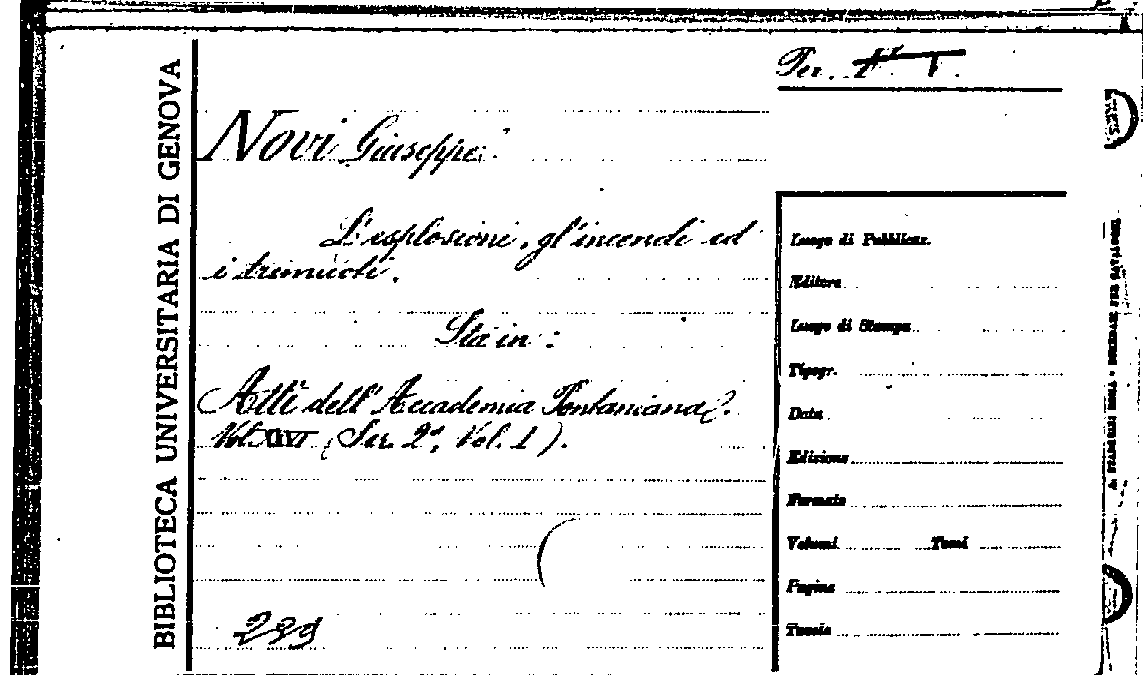 BIBLIOTECA UNIVERSITARIA DI GENOVA
Per.
Novi Giuseppe.
L'esplosioni, gl'incendi ed
i tremuoti.
Sta in:
Atti dell'Accademia Pontaniana.
Vol. XLVI (Ser. 2ª, Vol. 1).
299
Luogo di Pubblicaz.
Editore
Luogo di Stampa
Tipogr.
Data
Edizione
Formato
Volumi Tomi
Pagine
Tavole